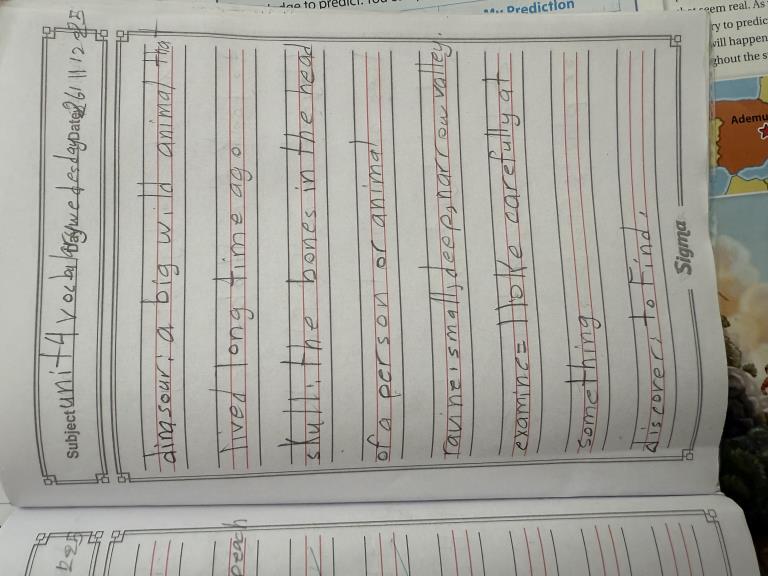 Subject unit 4 vocabulary Day wedesday Date 26 11 12 025
dinasour: a big wild animal that
lived long time ago
skull: the bones in the head
of a person or animal
ravine: small, deep, narrow valley.
examine = looke carefully at
something.
discover: to find.
Sigma
peach
My Prediction
seem real. As
ry to predic
will happen
ghout the s
Ademu